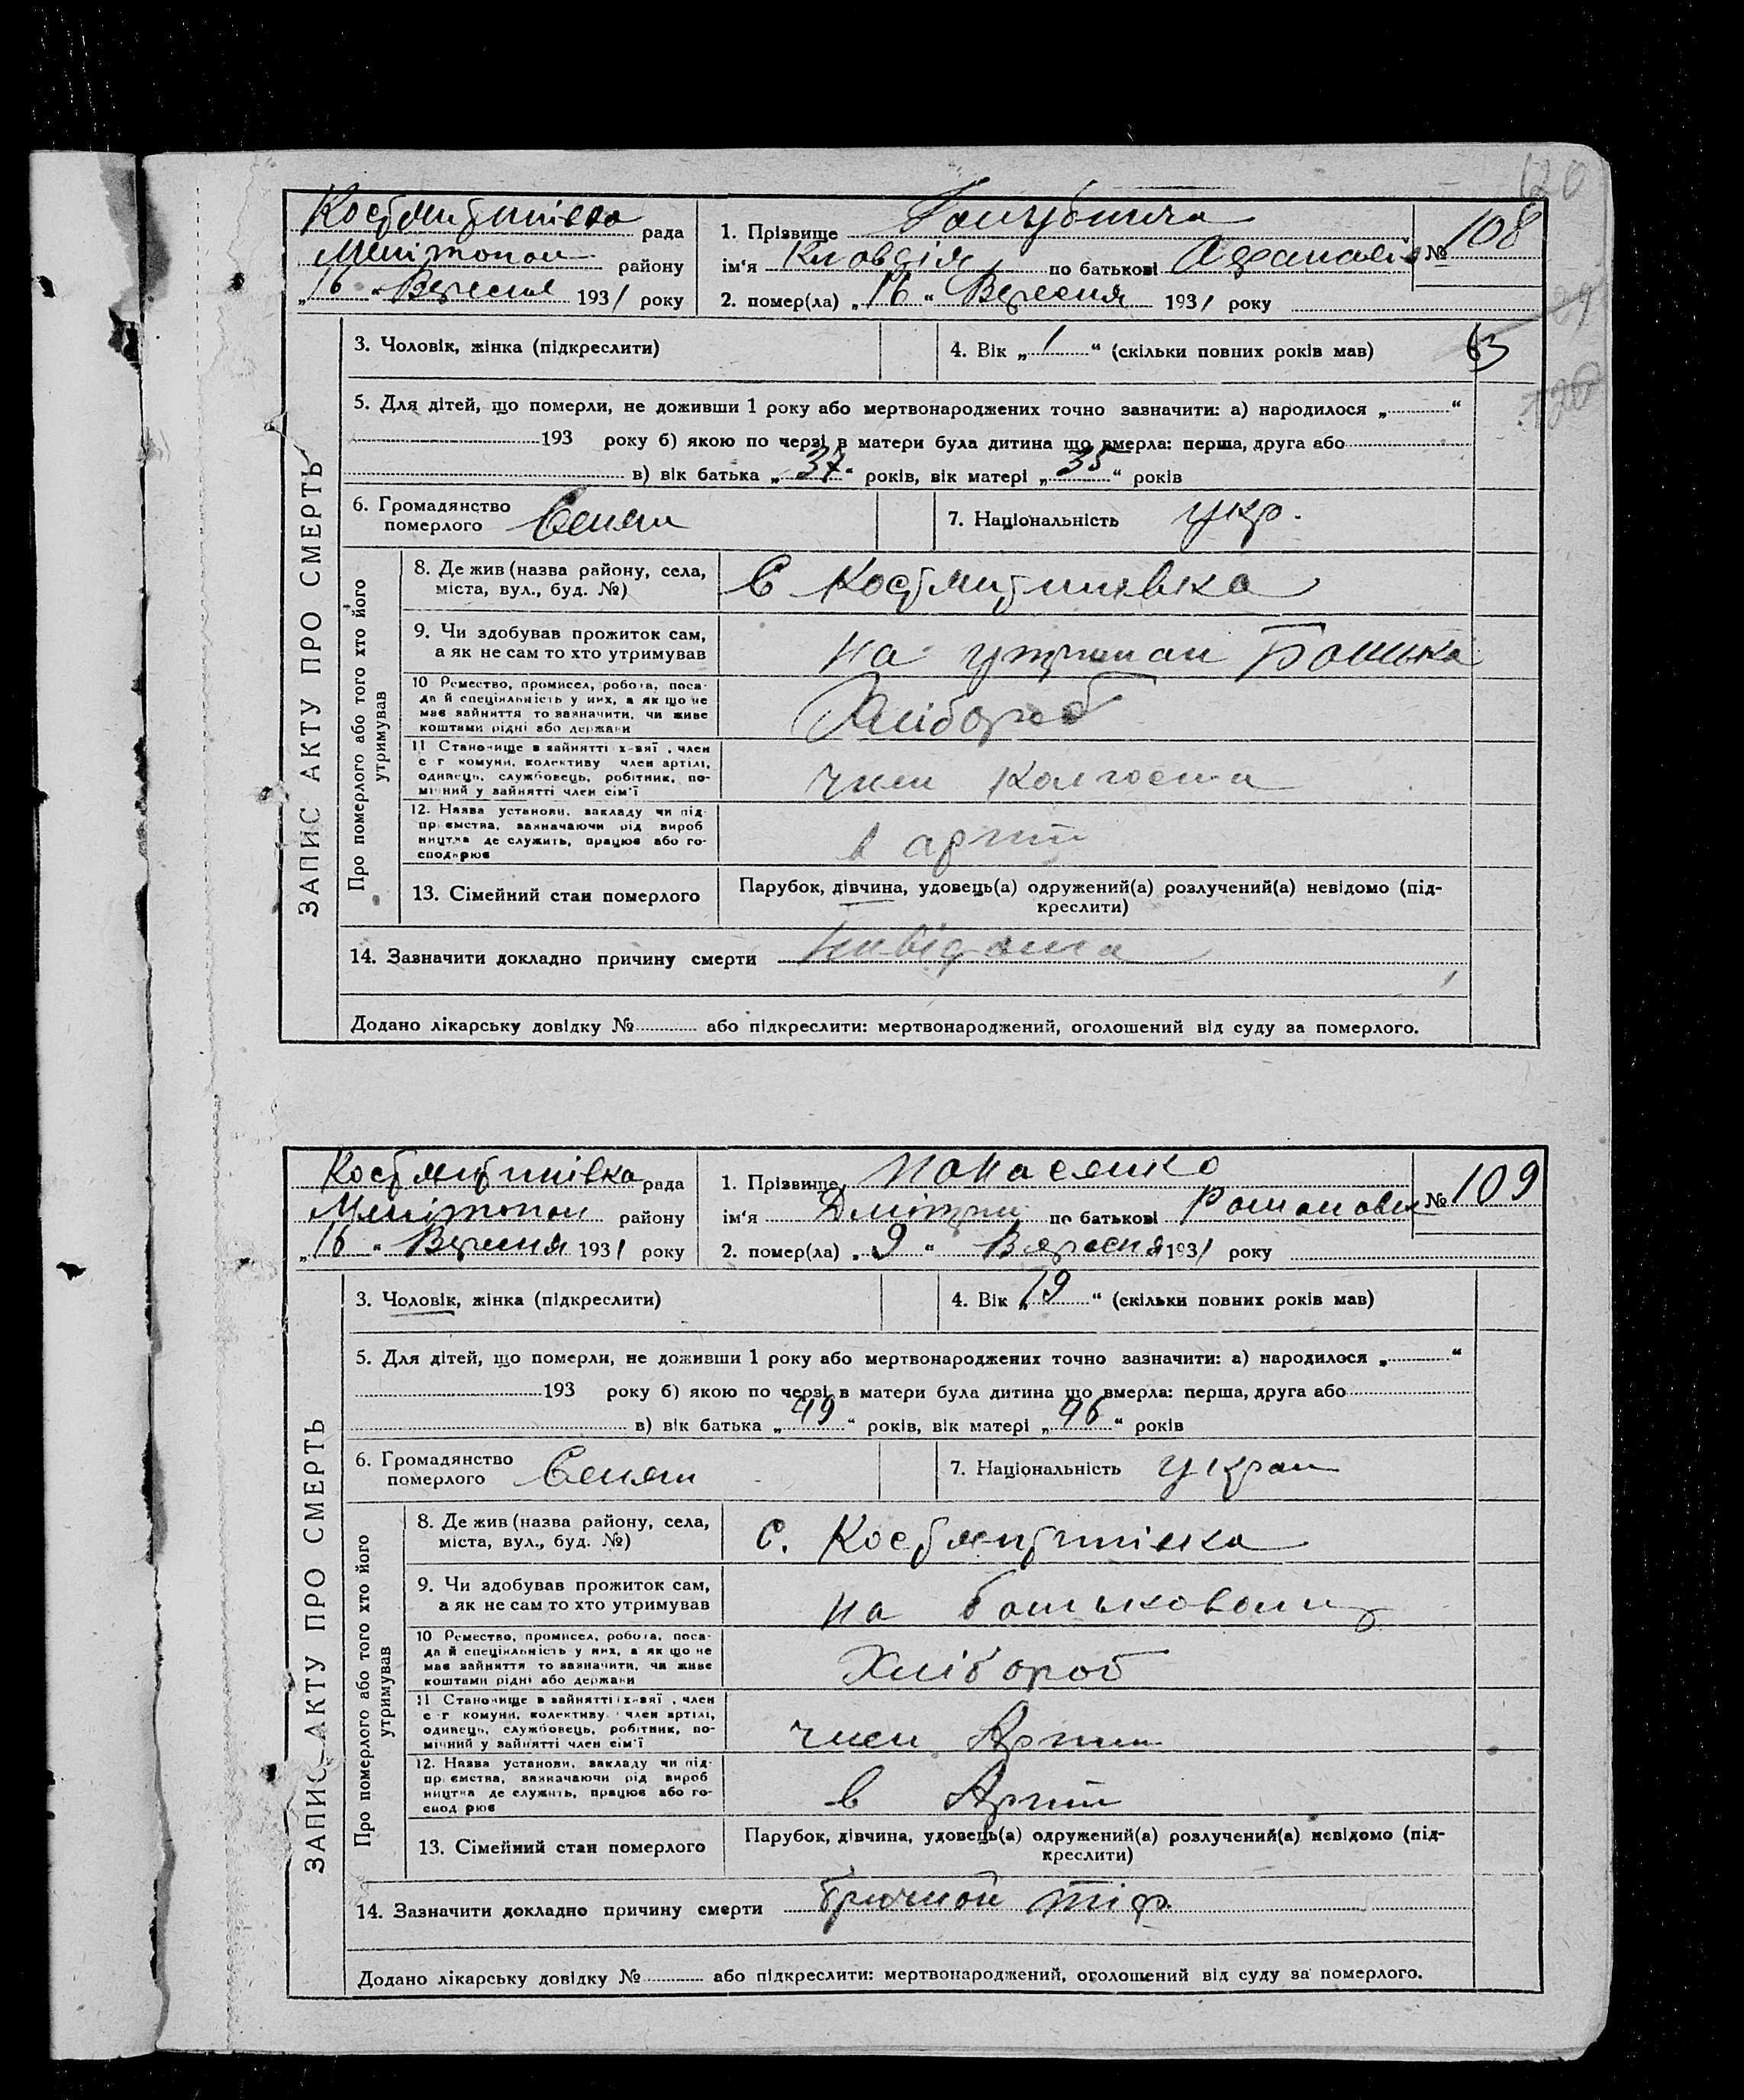 120
Костянтинівка рада
Мелітопол району
„16“ Вересня 1931 року
1. Прізвище
ім‘я Клавдія по батькові Афанасів
2. помер(ла) „16“ Вересня 1931 року
№ 108
ЗАПИС АКТУ ПРО СМЕРТЬ
3. Чоловік, жінка (підкреслити)
4. Вік „1“ (скільки повних років мав)
63
5. Для дітей, що померли, не доживши 1 року або мертвонароджених точно зазначити: а) народилося „ “
193 року б) якою по черзі в матери була дитина що вмерла: перша, друга або
в) вік батька „37“ років, вік матері „35“ років
6. Громадянство
померлого Селян
7. Національність укр.
Про померлого або того хто його
утримував
8. Де жив (назва району, села,
міста, вул., буд. №)
С Костянтинівка
9. Чи здобував прожиток сам,
а як не сам то хто утримував
на утриман Батька
10 Ремество, промисел, робота, поса-
да й спеціяльність у них, а як що не
має зайняття то зазначити, чи живе
коштами рідні або держави
Хлібороб
11 Становище в зайнятті х-вяї, член
с г комуни, колективу член артілі,
одинець, службовець, робітник, по-
мічний у зайнятті член сім‘ї
член Колгоспа
12. Назва установи, закладу чи під-
пр ємства, зазначаючи рід вироб
ництва де служить, працює або го-
сподарює
в артіл
13. Сімейний стан померлого
Парубок, дівчина, удовець(а) одружений(а) розлучений(а) невідомо (під-
креслити)
14. Зазначити докладно причину смерти
Додано лікарську довідку № або підкреслити: мертвонароджений, оголошений від суду за померлого.
Костянтинівка рада
Мелітопол району
„16“ Вересня 1931 року
1. Прізвище Панасенко
ім‘я Дмітрий по батькові Романович
2. помер(ла) „9“ Вересня 1931 року
№ 109
ЗАПИС АКТУ ПРО СМЕРТЬ
3. Чоловік, жінка (підкреслити)
4. Вік „19“ (скільки повних років мав)
5. Для дітей, що померли, не доживши 1 року або мертвонароджених точно зазначити: а) народилося „ “
193 року б) якою по черзі в матери була дитина що вмерла: перша, друга або
в) вік батька „49“ років, вік матері „46“ років
6. Громадянство
померлого Селян
7. Національність Украп
Про померлого або того хто його
утримував
8. Де жив (назва району, села,
міста, вул., буд. №)
С. Костянтинівка
9. Чи здобував прожиток сам,
а як не сам то хто утримував
на батьковому
10 Ремество, промисел, робота, поса-
да й спеціяльність у них, а як що не
має зайняття то зазначити, чи живе
коштами рідні або держави
Хлібороб
11 Становище в зайнятті х-вяї, член
с г комуни, колективу член артілі,
одинець, службовець, робітник, по-
мічний у зайнятті член сім‘ї
член Артіл
12. Назва установи, закладу чи під-
пр ємства, зазначаючи рід вироб
ництва де служить, працює або го-
спод рює
в Артіл
13. Сімейний стан померлого
Парубок, дівчина, удовець(а) одружений(а) розлучений(а) невідомо (під-
креслити)
14. Зазначити докладно причину смерти брюшной тіф.
Додано лікарську довідку № або підкреслити: мертвонароджений, оголошений від суду за померлого.